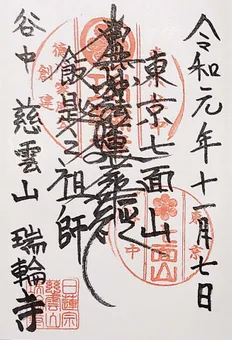 令和元年十一月七日
東京七面山
南無妙法蓮華経
飯匙之祖師
谷中 慈雲山 瑞輪寺
創建
東京
七面山
中
日蓮宗
慈雲山